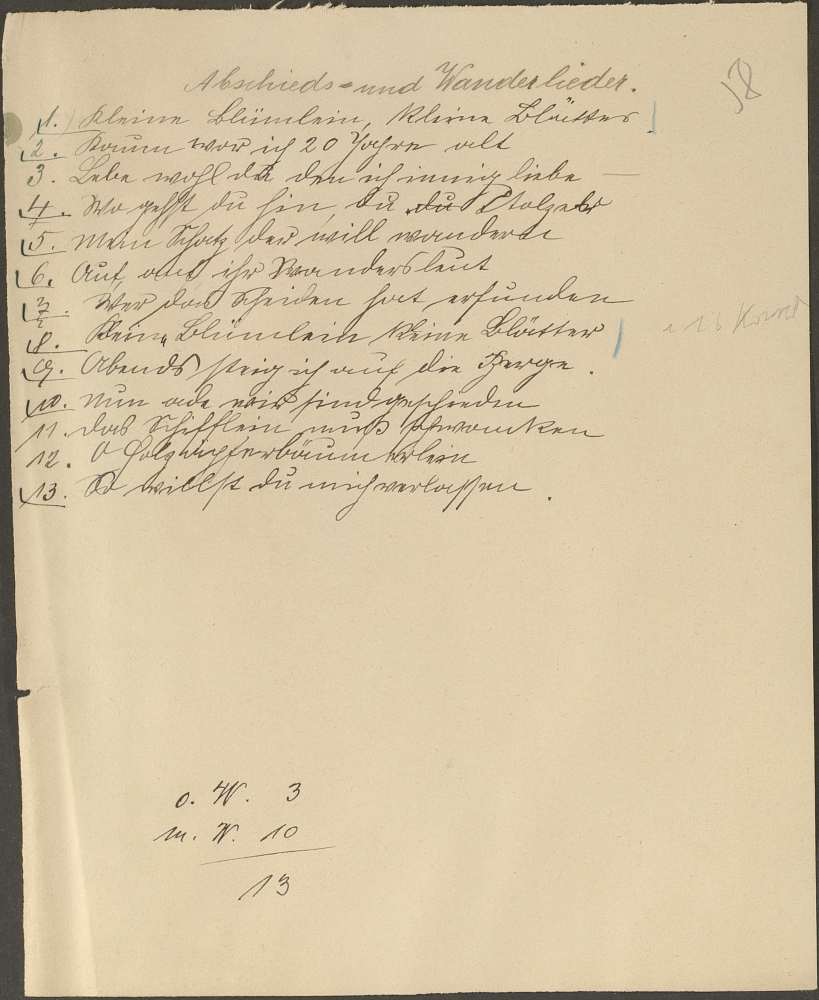 18
Abschieds- und Wanderlieder.
1.) Kleine Blümlein, kleine Blätter
2. Kaum war ich 20 Jahre alt
3. Lebe wohl du den ich innig liebe —
4. Wo gehst du hin, du du Stolzer
5. Mein Schatz der will wandern
6. Auf, auf ihr Wandersleut
7. Wer das Scheiden hat erfunden
8. Kleine Blümlein kleine Blätter
9. Abends steig ich auf die Berge.
10. Nun ade wir sind geschieden
11. das Schifflein muß
12. O
13. So willst du mich verlassen.
o. W. 3
m. W. 10
13